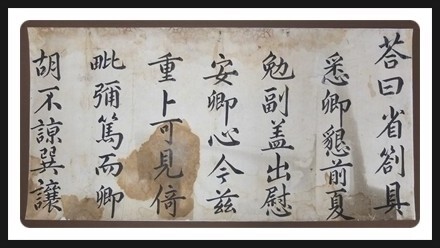 答曰省劄具
悉卿懇前夏
勉副盖出慰
安卿心今兹
重卜可見倚
毗彌篤而卿
胡不諒巽讓